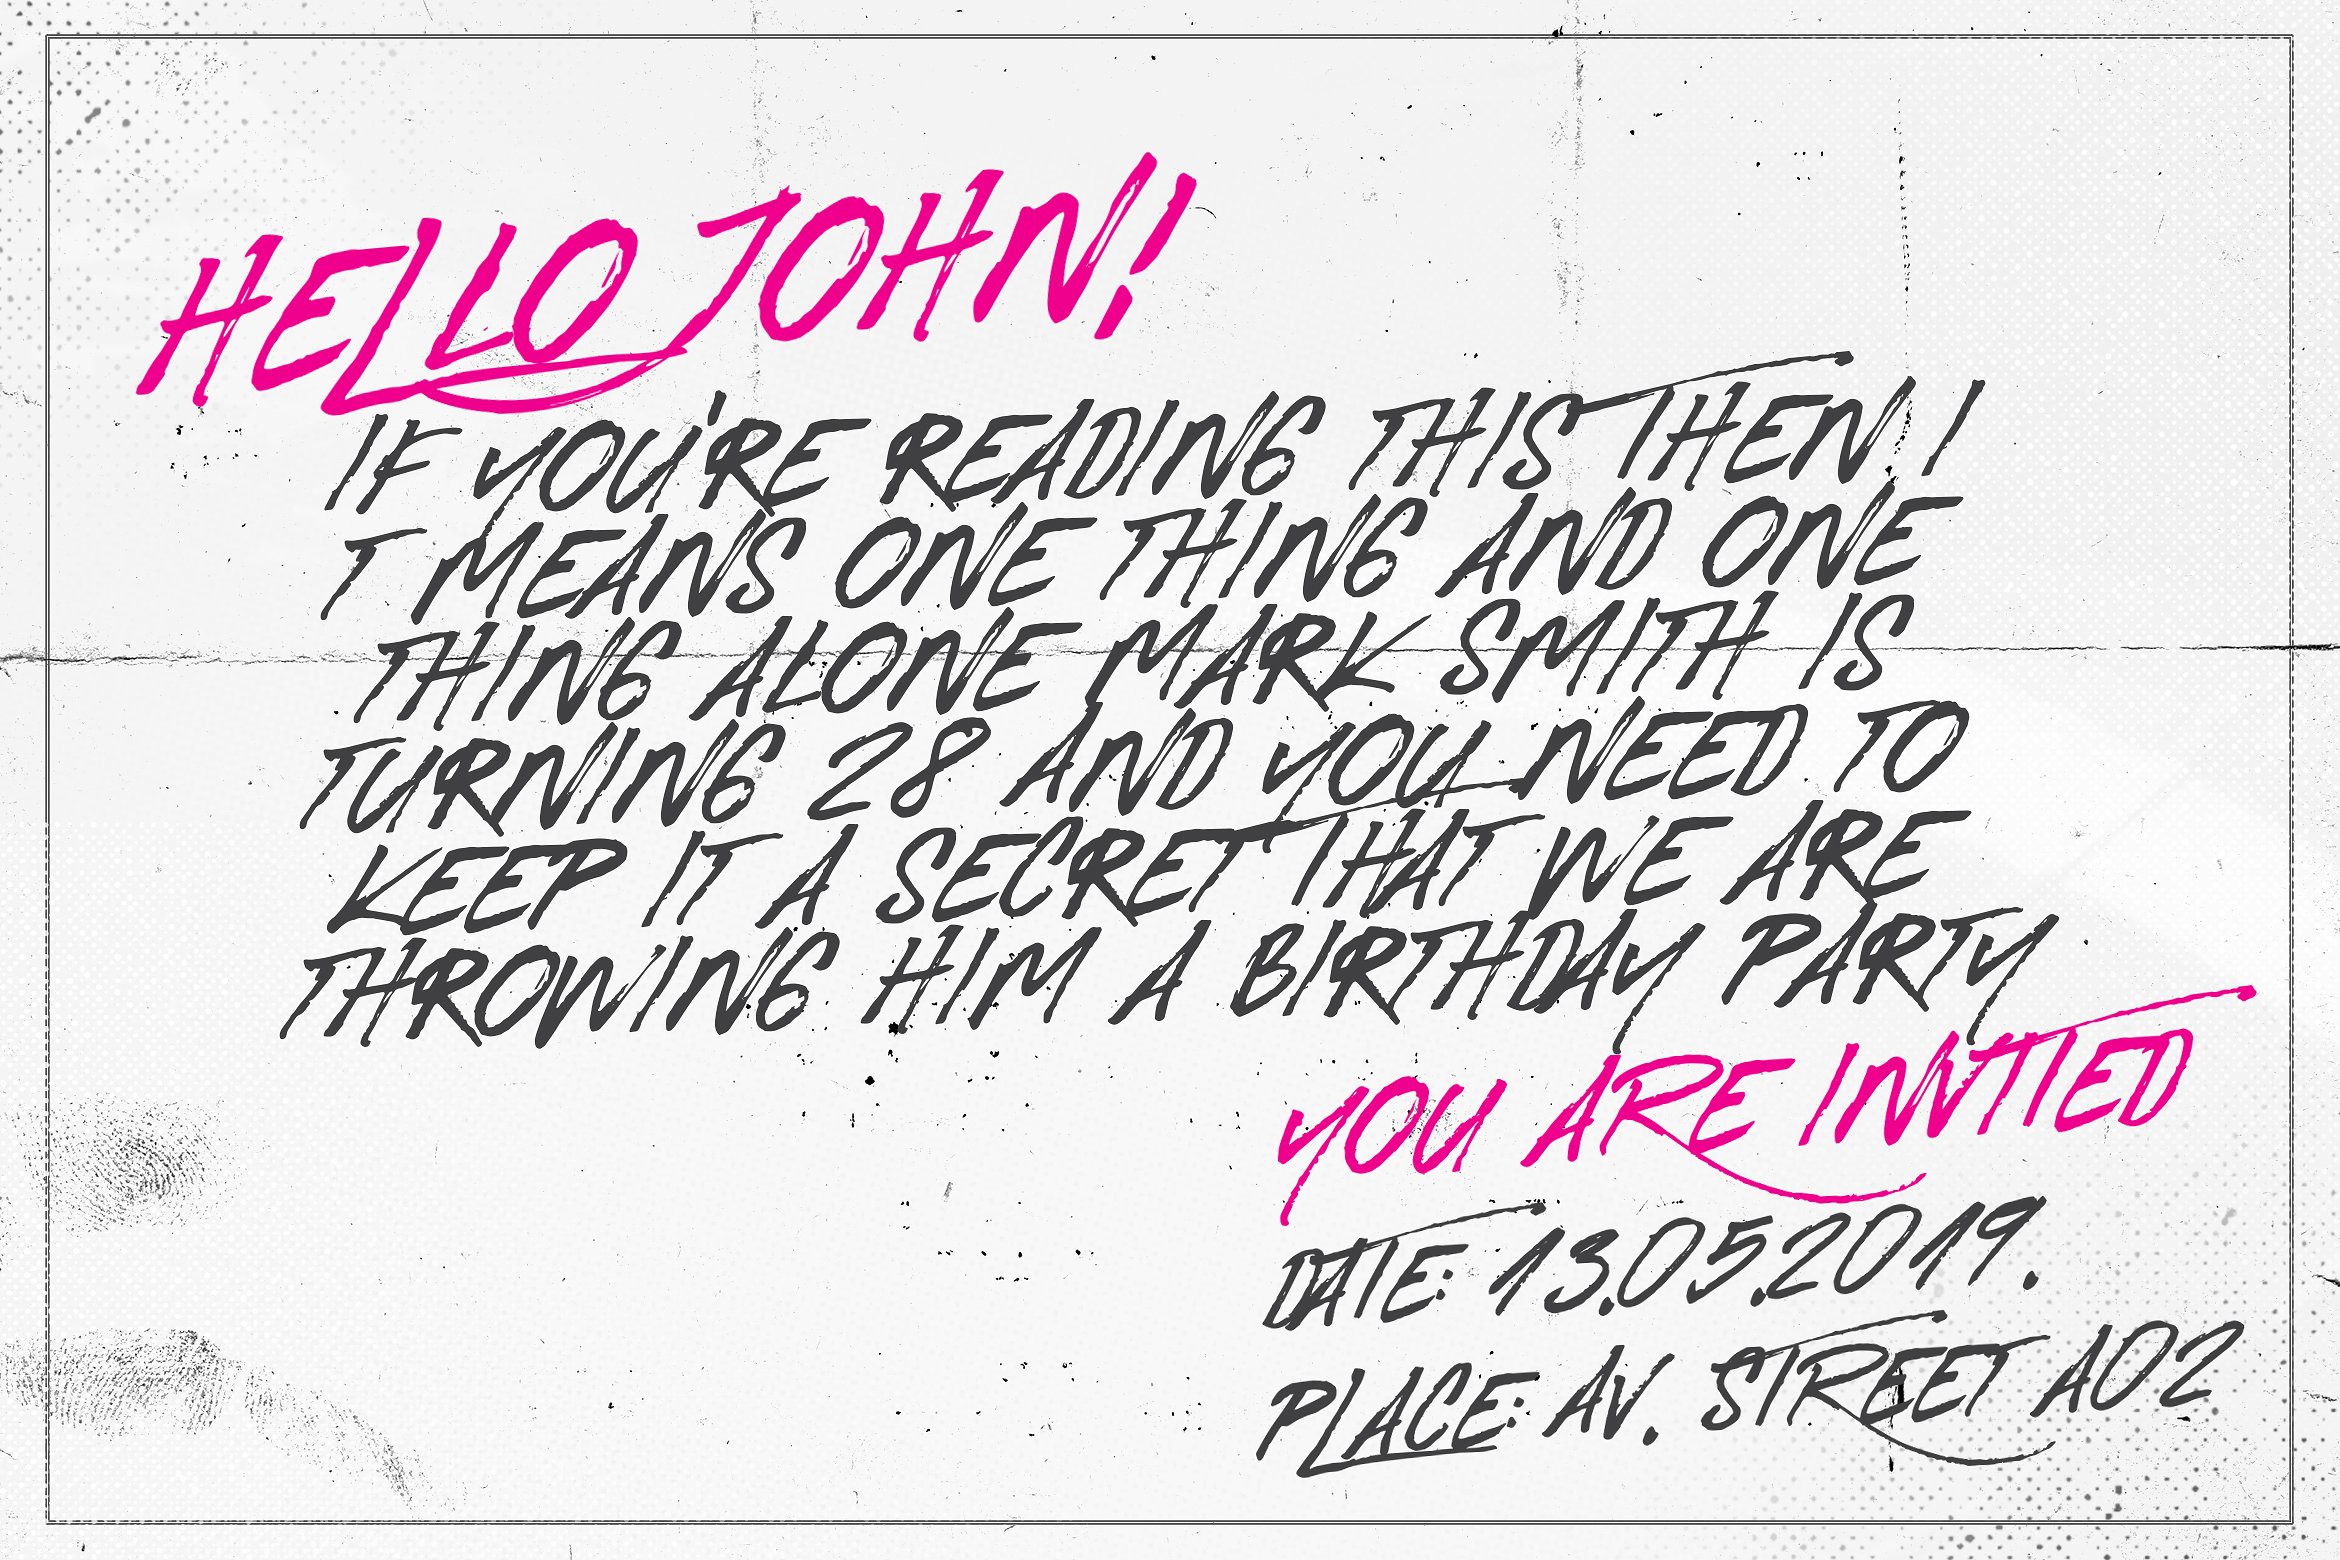 HELLO JOHN!
IF YOU'RE READING THIS THEN I
T MEANS ONE THING AND ONE
THING ALONE MARK SMITH IS
TURNING 28 AND YOU NEED TO
KEEP IT A SECRET THAT WE ARE
THROWING HIM A BIRTHDAY PARTY
YOU ARE INVTIED
DATE: 13.05.2019.
PLACE: AV. STREET A02